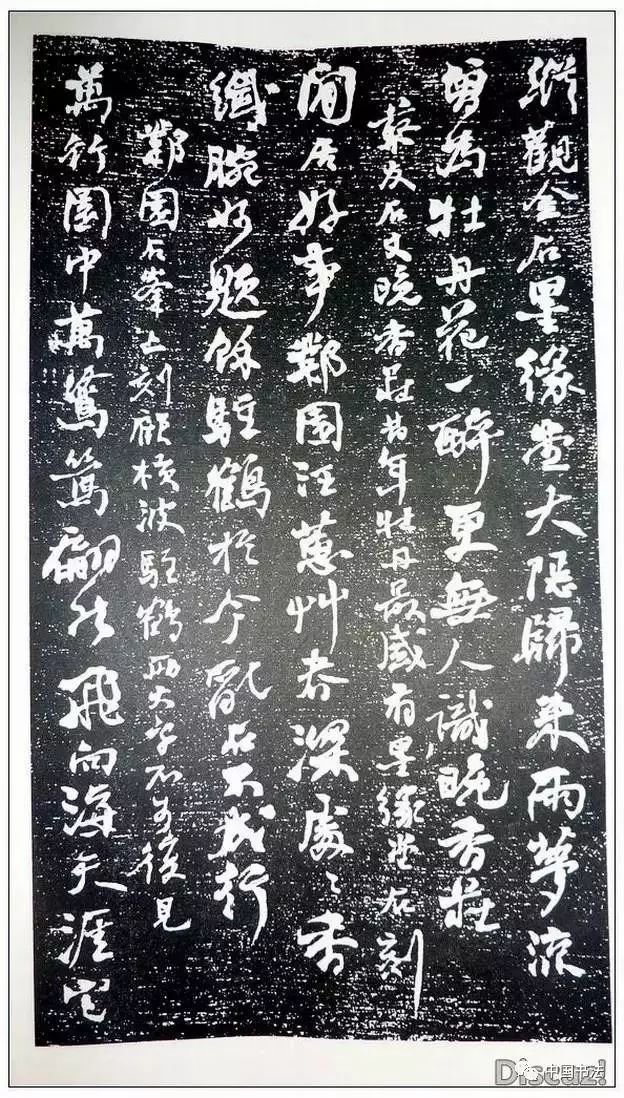 縱觀金石墨緣堂大隱歸來兩夢涼
曾爲牡丹花一醉更無人識晚香莊
蔡友石丈晚香莊昔年牡丹最盛有墨緣堂石刻
閒居好事園汪蕙艸春深處〻香
纖腕好題餘駐鶴於今亂石不成行
園石峯上刻顧橫波駐鶴兩大字不可復見
萬竹園中萬翩然飛向海天涯它
Discuz!
中国书法